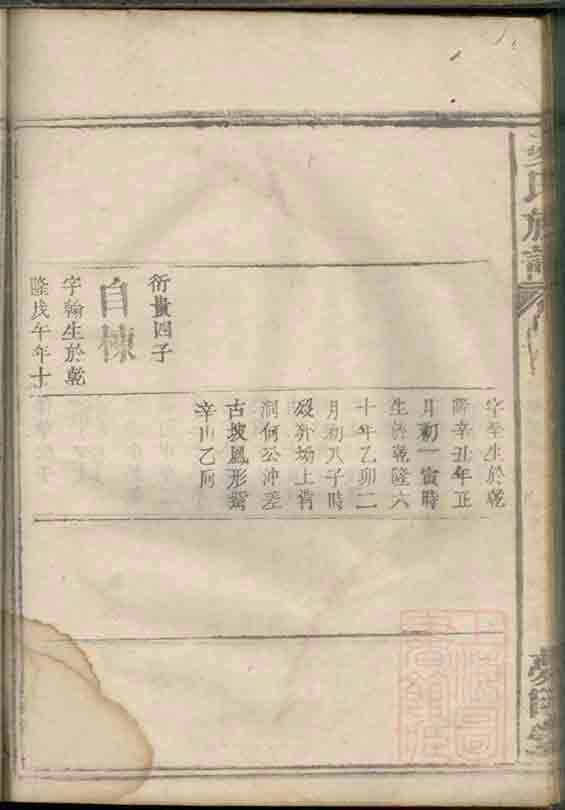 氏族譜
字至生於乾
隆辛丑年正
月初一寅時
生於乾隆六
十年乙卯二
月初八子時
歿葬场上背
洞何公沖差
古坡鳳形
辛山乙向
衍貴四子
自棟
字翰生於乾
隆戊午年十